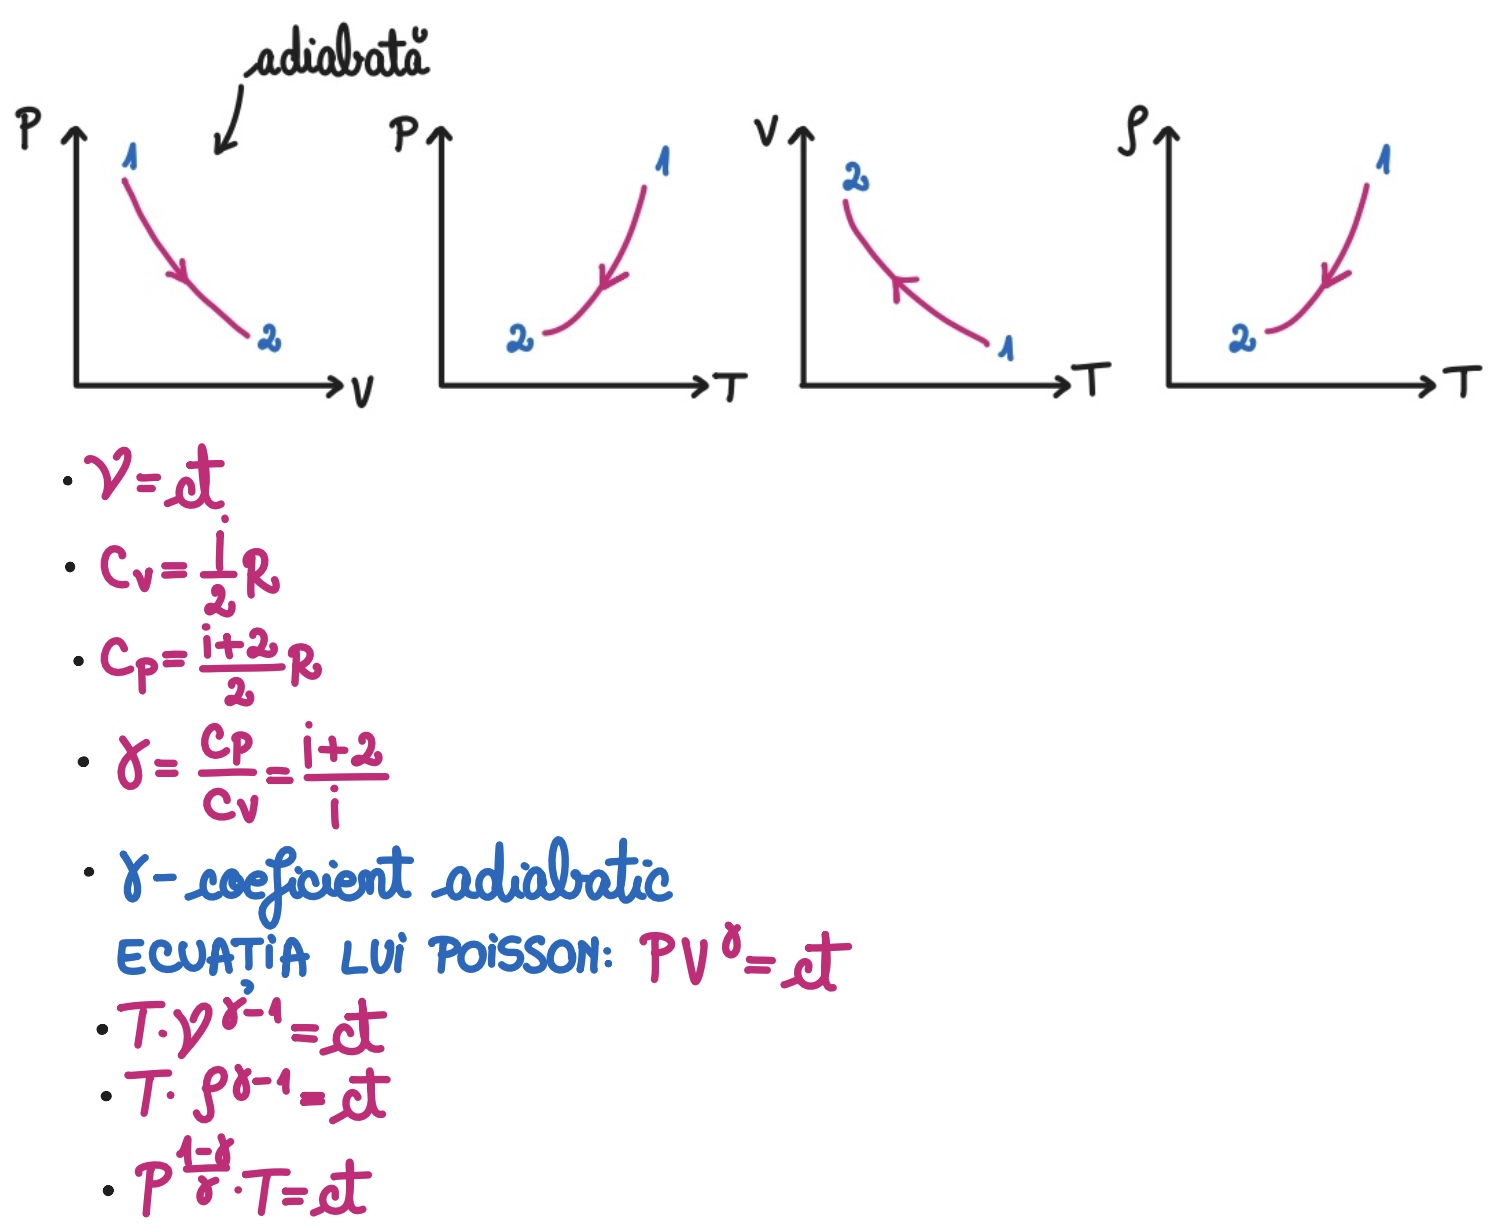 adiabată
P 1 2 V
P 1 2 T
V 2 1 T
ρ 1 2 T
• ν = ct
• Cv = i/2 R
• Cp = (i+2)/2 R
• γ = Cp/Cv = (i+2)/i
• γ - coeficient adiabatic
ECUAȚIA LUI POISSON: PV^γ = ct
• T·ν^(γ-1) = ct
• T·ρ^(γ-1) = ct
• P^((1-γ)/γ)·T = ct